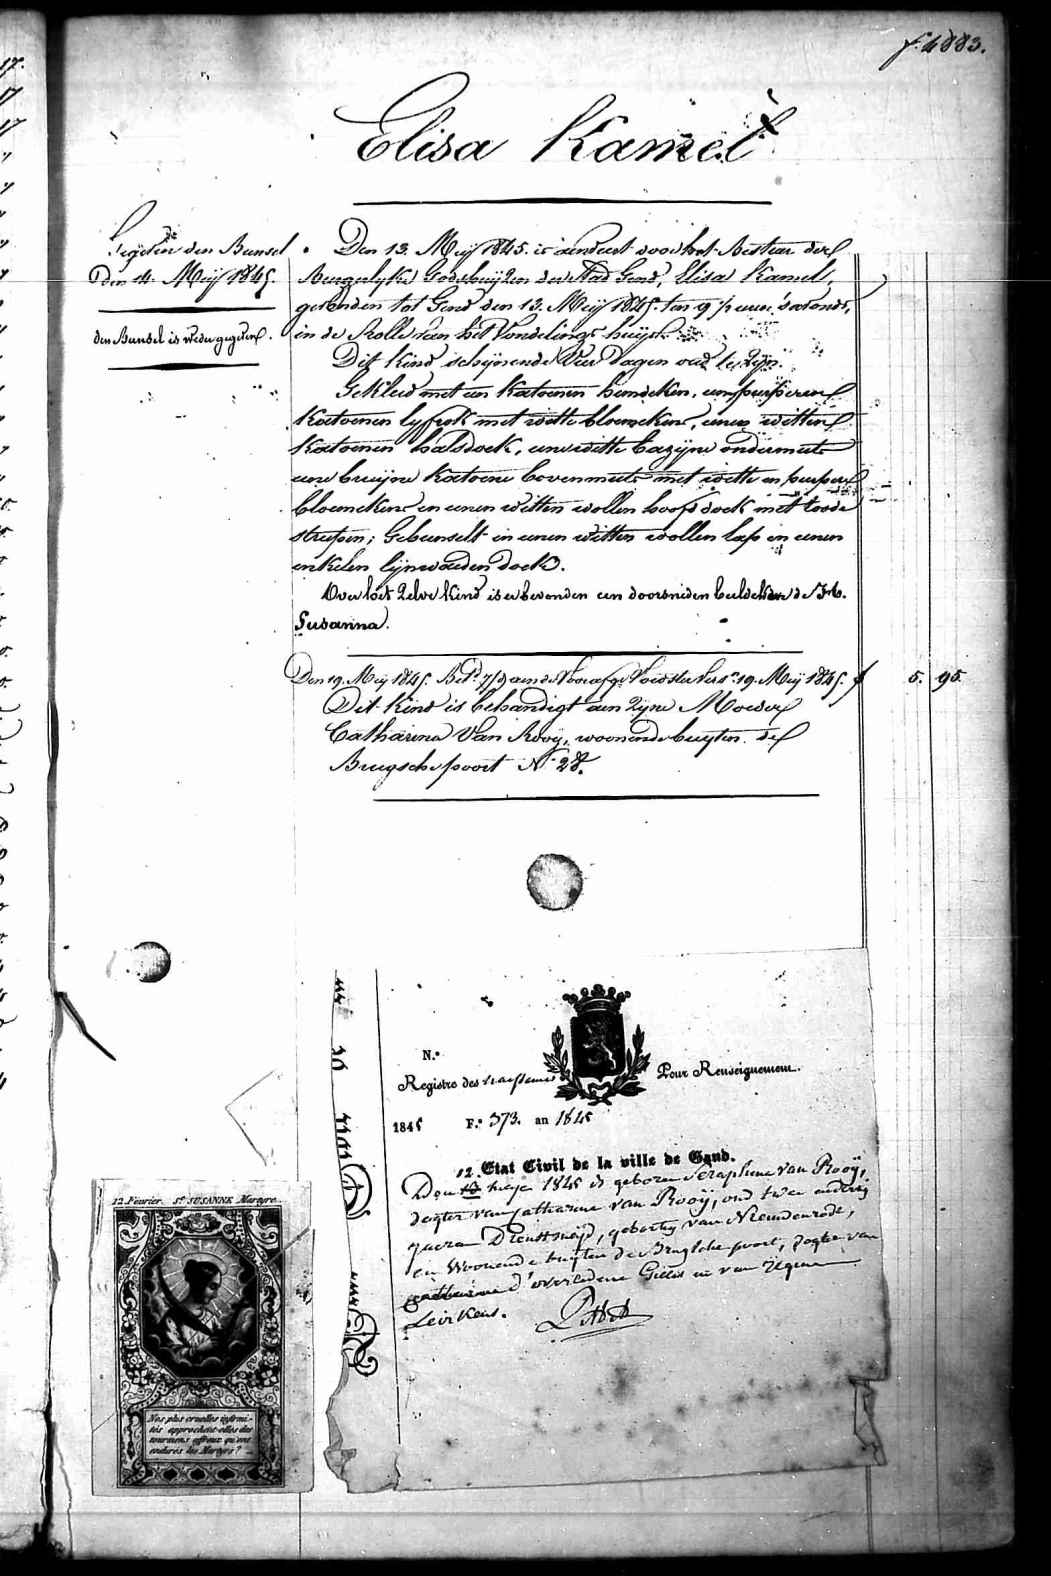 f. 4883.
Elisa Kamel
den Bunsel
Den 14. Meij 1845.
den Bunsel is weder gegeven.
Den 13. Meij 1845. is aenveert door het Bestuer der
Burgerlyke Godshuijzen der Stad Gend, Elisa Kamel,
gevonden tot Gend den 13. Meij 1845. ten 9 ½ uure 's avonds,
in de Rolle van het Vondelings huijs.
Dit kind schijnende Vier dagen oud te zijn.
Gekleed met een katoenen hemdeken, een purperen
katoenen lyfrok met witte bloemekens, eenen witten
katoenen halsdoek, eene witte bazijne ondermuts
eene bruijne katoene bovenmuts met witte en purpere
bloemekens en eenen witten wollen hoofddoek met roode
streepen; Gebunselt in eenen witten wollen lap en eenen
enkelen lijnwaeden doek.
Over het zelve kind is er bevonden een doorsneden beeldeken de Ste.
Susanna.
Den 19. Meij 1845. Bet. aen de Voedster 19. Meij 1845. f 5. 95.
Dit kind is behandigt aen zijne Moeder
Catharina Van Rooij, woonende buyten de
Brugschepoort No. 28.
N.º
Registre des naissances
Pour Renseignement.
1845 F.º 373. an 1845
Etat Civil de la ville de Gand.
Den 12 meije 1845 is geboren Seraphine van Rooij,
dogter van Catharine van Rooij, oud twee endertig
jaeren Dienstmeijd, geboortig van
en Woonende buijten de Brugsche poort, dogter van
d'overledene Gillis en van
12 Février. Ste SUSANNE Martyre.
Nos plus cruelles infirmi-
tés approchent-elles des
tourmens affreux qu'ont
endurés les Martyrs?